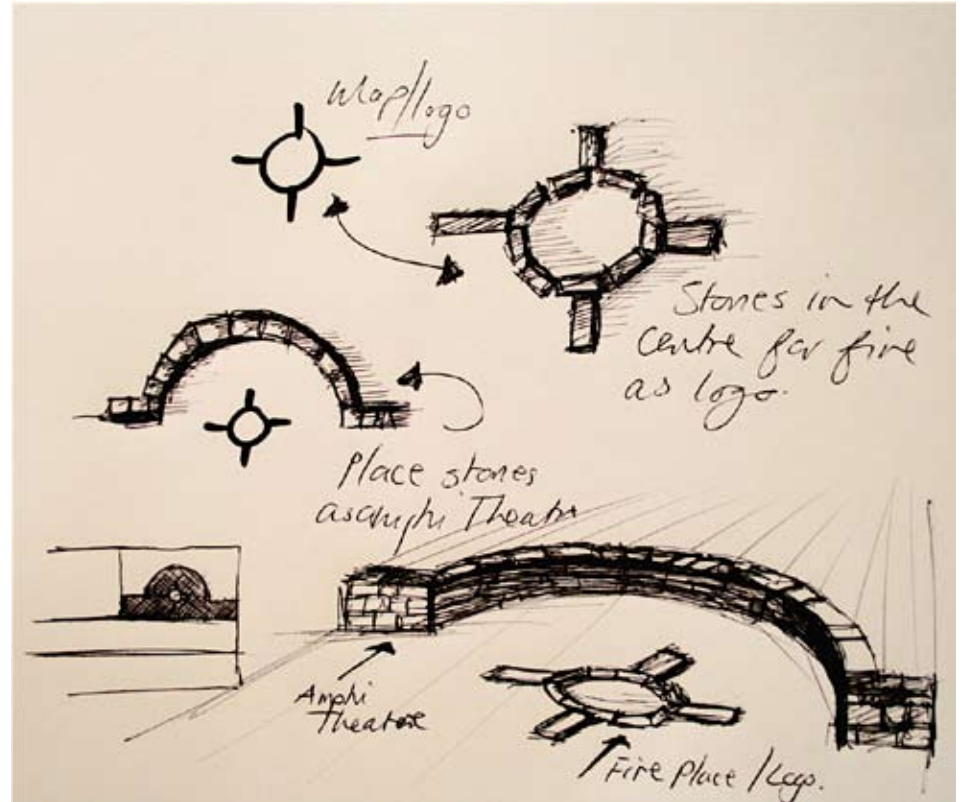 Map/logo
Stones in the
Centre for fire
as logo.
Place stones
as amphi Theatre
Amphi
Theatre
Fire place / Logo.